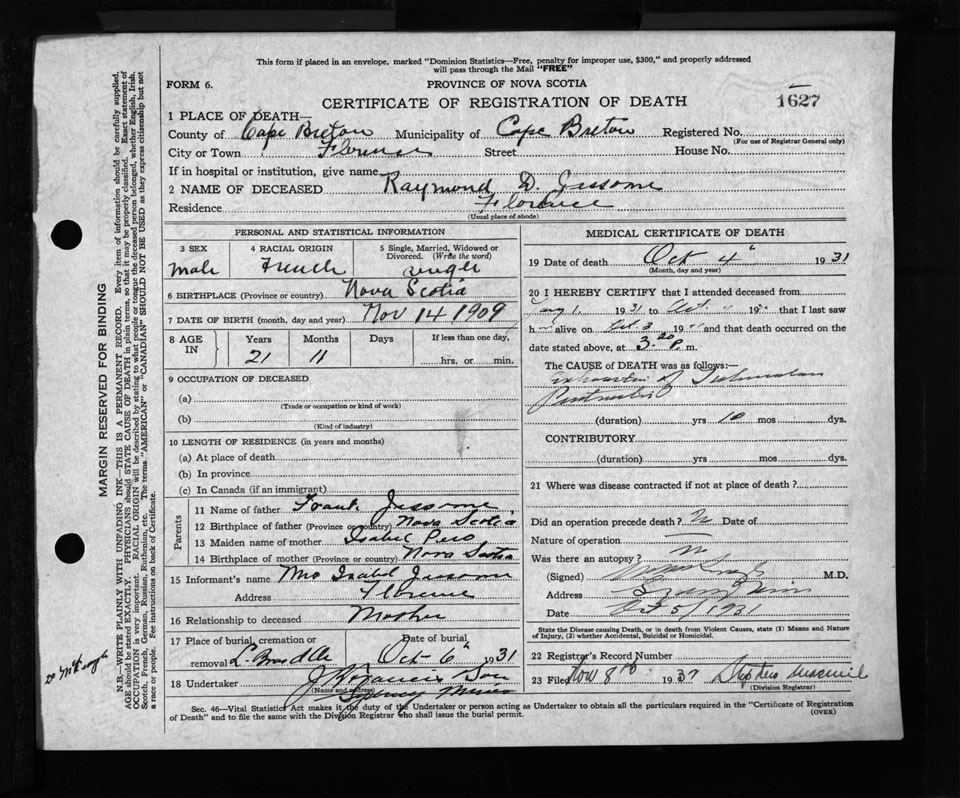 This form if placed in an envelope, marked "Dominion Statistics—Free, penalty for improper use, $300," and properly addressed
will pass through the Mail "FREE"
FORM 6. PROVINCE OF NOVA SCOTIA
CERTIFICATE OF REGISTRATION OF DEATH 1627
1 PLACE OF DEATH—
County of Cape Breton Municipality of Cape Breton Registered No.
(For use of Registrar General only)
City or Town Florence Street House No.
If in hospital or institution, give name
2 NAME OF DECEASED Raymond D. Jessome
Residence Florence
(Usual place of abode)
PERSONAL AND STATISTICAL INFORMATION
3 SEX 4 RACIAL ORIGIN 5 Single, Married, Widowed or Divorced. (Write the word)
male French single
6 BIRTHPLACE (Province or country) Nova Scotia
7 DATE OF BIRTH (month, day and year) Nov 14 1909
8 AGE IN Years Months Days If less than one day,
21 11 hrs. or min.
9 OCCUPATION OF DECEASED
(a)
(Trade or occupation or kind of work)
(b)
(Kind of industry)
10 LENGTH OF RESIDENCE (in years and months)
(a) At place of death
(b) In province
(c) In Canada (if an immigrant)
Parents
11 Name of father Frank Jessome
12 Birthplace of father (Province or country) Nova Scotia
13 Maiden name of mother Isabel
14 Birthplace of mother (Province or country) Nova Scotia
15 Informant's name Mrs Isabel Jessome
Address Florence
16 Relationship to deceased Mother
17 Place of burial, cremation or removal Date of burial
L. Bras d'Or Oct 6" 1931
18 Undertaker J
(Name and address)
Sydney Mines
MEDICAL CERTIFICATE OF DEATH
19 Date of death Oct 4" 1931
(Month, day and year)
20 I HEREBY CERTIFY that I attended deceased from
1 1931 to Oct 19 that I last saw
h alive on Oct. 3 19 and that death occurred on the
date stated above, at 3.20 P. m.
The CAUSE of DEATH was as follows:—
of
(duration) yrs 10 mos dys.
CONTRIBUTORY
(duration) yrs mos dys.
21 Where was disease contracted if not at place of death?
Did an operation precede death? Date of
Nature of operation
Was there an autopsy? no
(Signed) M.D.
Address
Date Oct 5/1931
State the Disease causing Death, or in death from Violent Causes, state (1) Means and Nature
of Injury, (2) whether Accidental, Suicidal or Homicidal.
22 Registrar's Record Number
23 Filed Nov 8th 19
(Division Registrar)
Sec. 46—Vital Statistics Act makes it the duty of the Undertaker or person acting as Undertaker to obtain all the particulars required in the "Certificate of Registration
of Death" and to file the same with the Division Registrar who shall issue the burial permit.
(OVER)
MARGIN RESERVED FOR BINDING
N.B.—WRITE PLAINLY WITH UNFADING INK—THIS IS A PERMANENT RECORD. Every item of information should be carefully supplied.
AGE should be stated EXACTLY. PHYSICIANS should STATE CAUSE OF DEATH in plain terms, so that it may be properly classified. Exact statement of
OCCUPATION is very important. RACIAL ORIGIN will be described by stating to what people or tongue the deceased person belonged, whether English, Irish,
Scotch, French, German, Russian, Ruthenian, etc. The terms "AMERICAN" or "CANADIAN" SHOULD NOT BE USED as they express citizenship but not
a race or people. See instructions on back of Certificate.